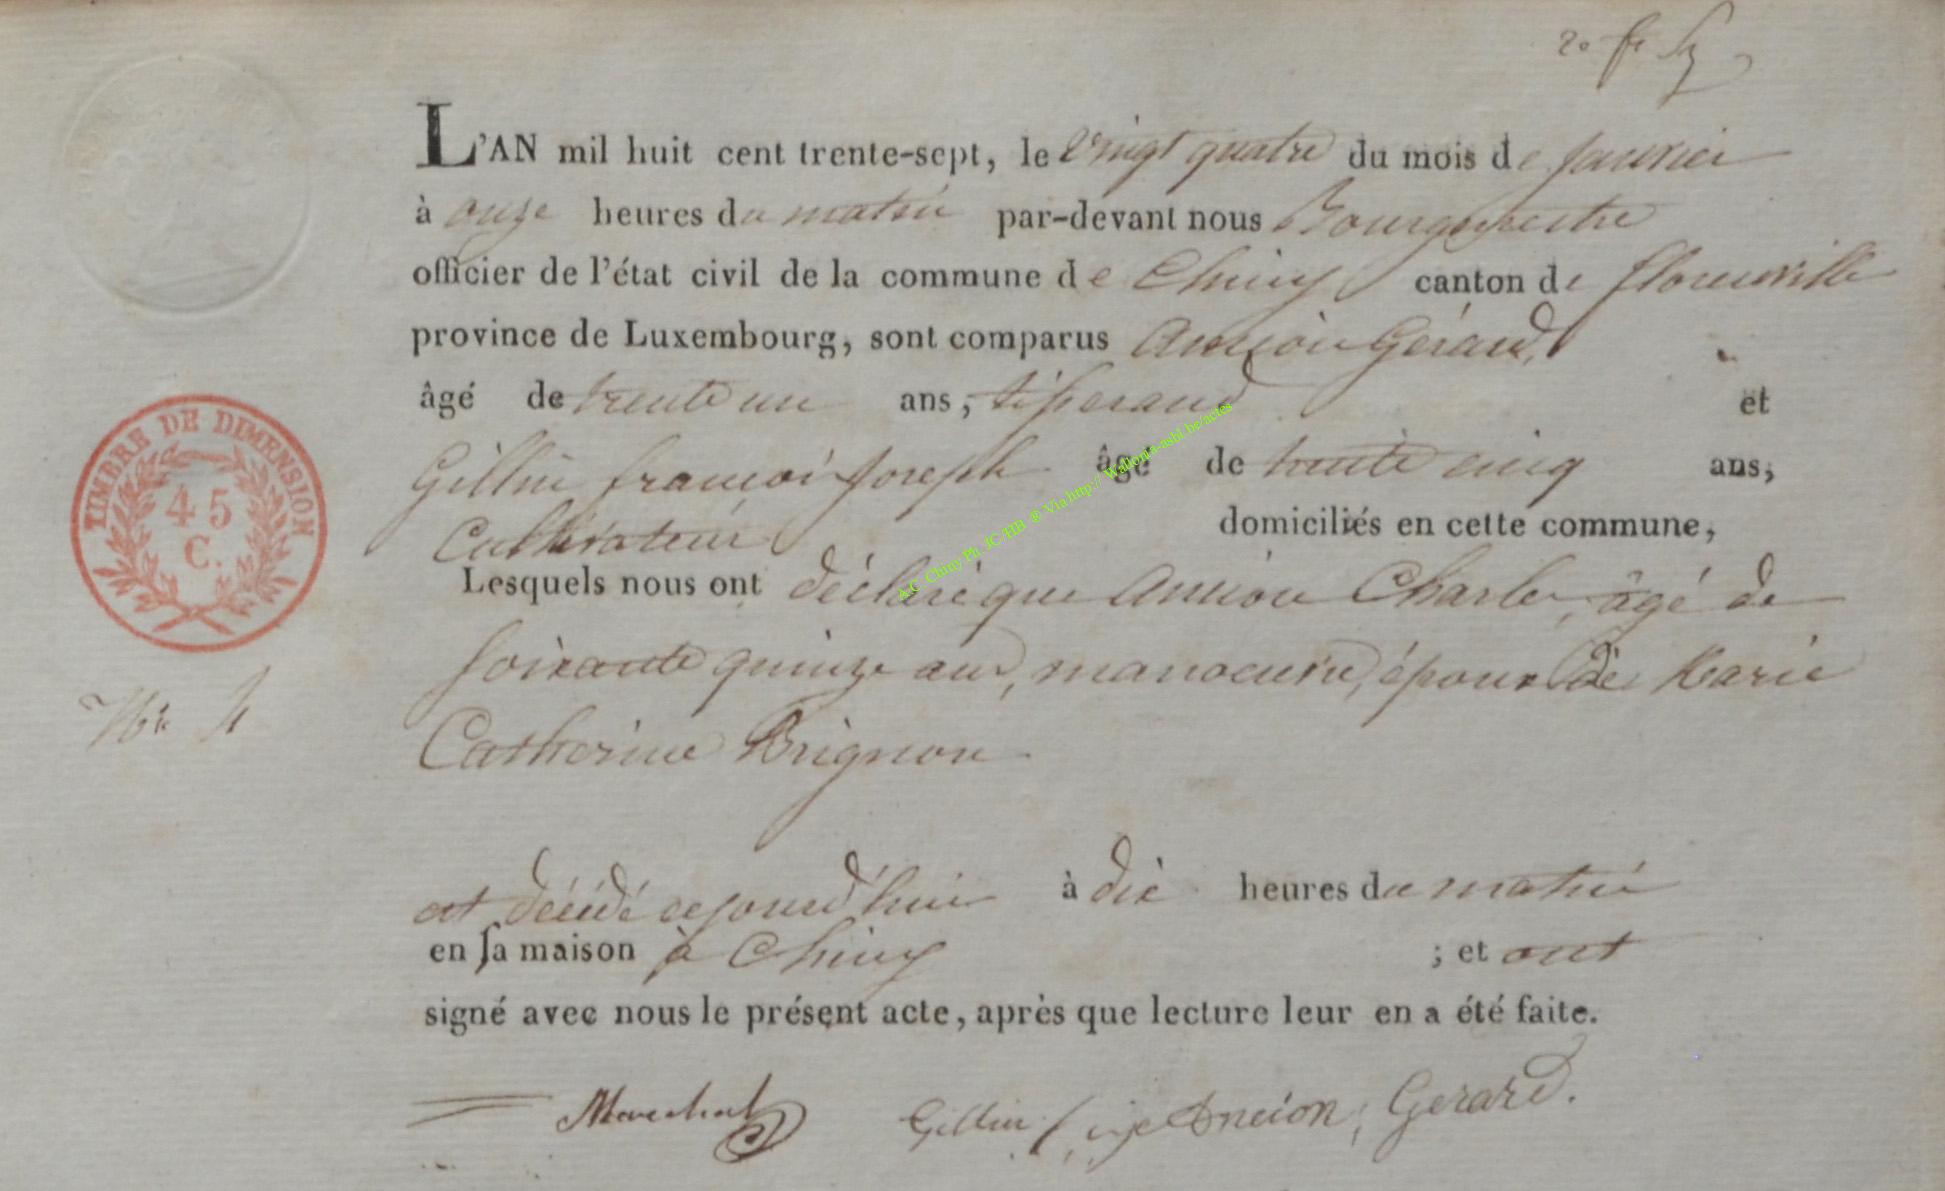 20 fr
L'AN mil huit cent trente-sept, le vingt quatre du mois de janvier
à onze heures du matin par-devant nous Bourgmestre
officier de l'état civil de la commune de Chiny canton de florenville
province de Luxembourg, sont comparus Ancion Gérard,
âgé de trente un ans, tisserand et
Gillin françois joseph âgé de trente cinq ans,
Cultivateur domiciliés en cette commune,
Lesquels nous ont déclaré que Ancion Charle, âgé de
soixante quinze ans, manoeuvre, époux de Marie
Catherine Brignon
est décédé cejourd'hui à dix heures du matin
en sa maison à Chiny ; et ont
signé avec nous le présent acte, après que lecture leur en a été faite.
Marechal Gillin Ancion, Gerard.
TIMBRE DE DIMENSION
45
C.
No 4
A.C. Chiny Ph. JC-HB ® Via http:// Wallonia-asbl.be/actes